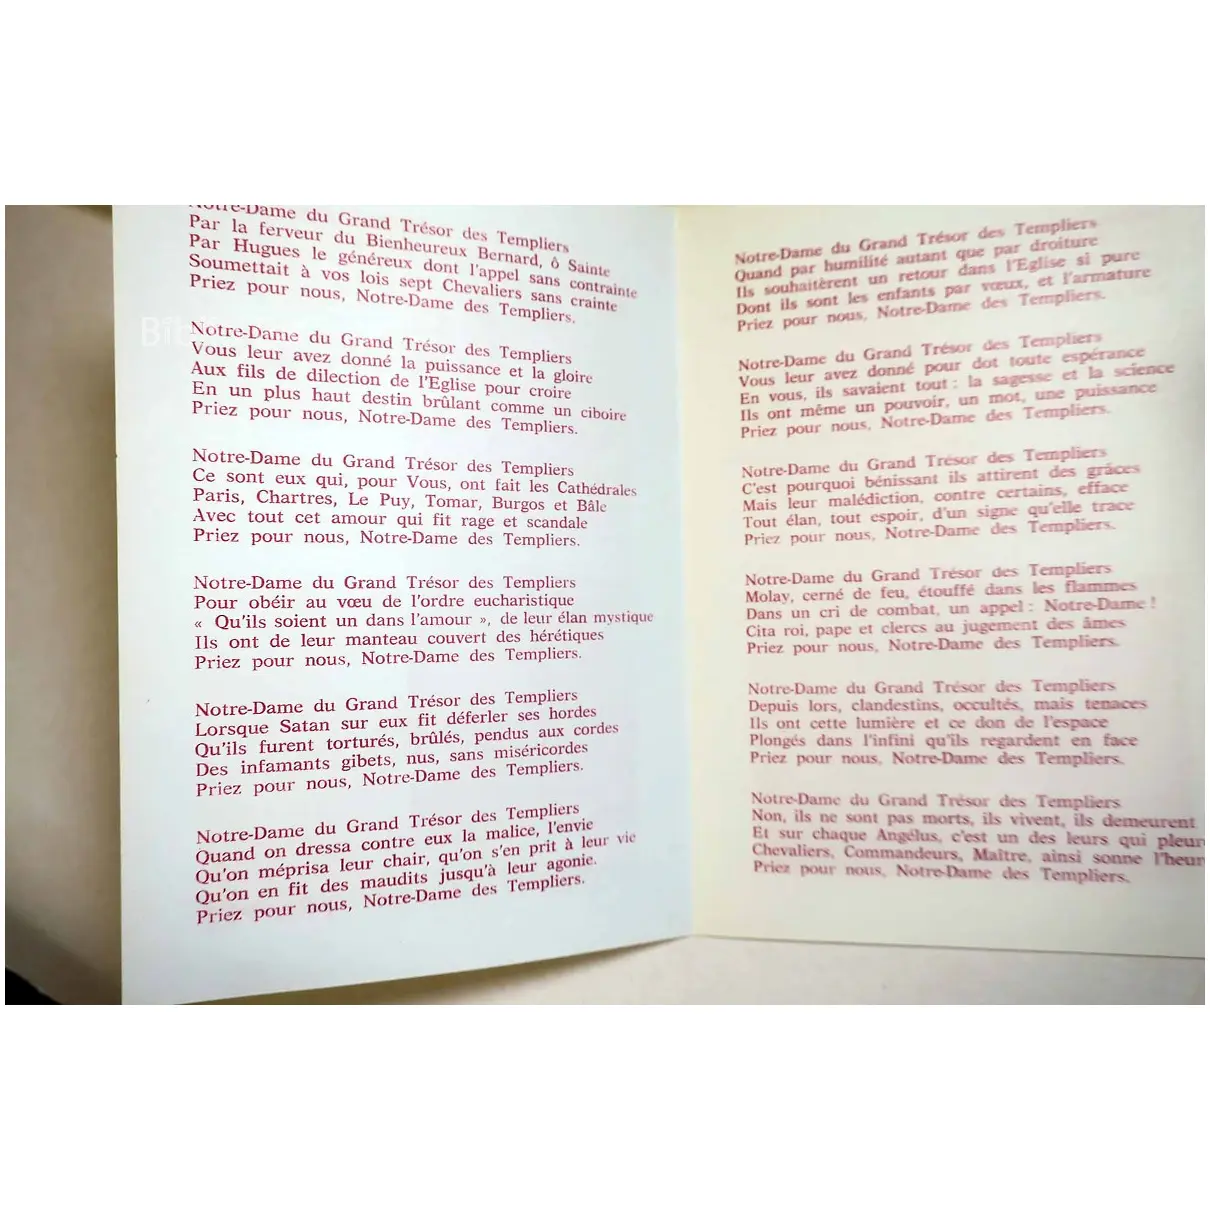 Notre-Dame du Grand Trésor des Templiers
Par la ferveur du Bienheureux Bernard, ô Sainte
Par Hugues le généreux dont l'appel sans contrainte
Soumettait à vos lois sept Chevaliers sans crainte
Priez pour nous, Notre-Dame des Templiers.

Notre-Dame du Grand Trésor des Templiers
Vous leur avez donné la puissance et la gloire
Aux fils de dilection de l'Eglise pour croire
En un plus haut destin brûlant comme un ciboire
Priez pour nous, Notre-Dame des Templiers.

Notre-Dame du Grand Trésor des Templiers
Ce sont eux qui, pour Vous, ont fait les Cathédrales
Paris, Chartres, Le Puy, Tomar, Burgos et Bâle
Avec tout cet amour qui fit rage et scandale
Priez pour nous, Notre-Dame des Templiers.

Notre-Dame du Grand Trésor des Templiers
Pour obéir au vœu de l'ordre eucharistique
« Qu'ils soient un dans l'amour », de leur élan mystique
Ils ont de leur manteau couvert des hérétiques
Priez pour nous, Notre-Dame des Templiers.

Notre-Dame du Grand Trésor des Templiers
Lorsque Satan sur eux fit déferler ses hordes
Qu'ils furent torturés, brûlés, pendus aux cordes
Des infamants gibets, nus, sans miséricordes
Priez pour nous, Notre-Dame des Templiers.

Notre-Dame du Grand Trésor des Templiers
Quand on dressa contre eux la malice, l'envie
Qu'on méprisa leur chair, qu'on s'en prit à leur vie
Qu'on en fit des maudits jusqu'à leur agonie.
Priez pour nous, Notre-Dame des Templiers.

Notre-Dame du Grand Trésor des Templiers
Quand par humilité autant que par droiture
Ils souhaitèrent un retour dans l'Eglise si pure
Dont ils sont les enfants par vœux, et l'armature
Priez pour nous, Notre-Dame des Templiers.

Notre-Dame du Grand Trésor des Templiers
Vous leur avez donné pour dot toute espérance
En vous, ils savaient tout : la sagesse et la science
Ils ont même un pouvoir, un mot, une puissance
Priez pour nous, Notre-Dame des Templiers.

Notre-Dame du Grand Trésor des Templiers
C'est pourquoi bénissant ils attirent des grâces
Mais leur malédiction, contre certains, efface
Tout élan, tout espoir, d'un signe qu'elle trace
Priez pour nous, Notre-Dame des Templiers.

Notre-Dame du Grand Trésor des Templiers
Molay, cerné de feu, étouffé dans les flammes
Dans un cri de combat, un appel : Notre-Dame !
Cita roi, pape et clercs au jugement des âmes
Priez pour nous, Notre-Dame des Templiers.

Notre-Dame du Grand Trésor des Templiers
Depuis lors, clandestins, occultés, mais tenaces
Ils ont cette lumière et ce don de l'espace
Plongés dans l'infini qu'ils regardent en face
Priez pour nous, Notre-Dame des Templiers.

Notre-Dame du Grand Trésor des Templiers
Non, ils ne sont pas morts, ils vivent, ils demeurent
Et sur chaque Angélus, c'est un des leurs qui pleur
Chevaliers, Commandeurs, Maître, ainsi sonne l'heur
Priez pour nous, Notre-Dame des Templiers.